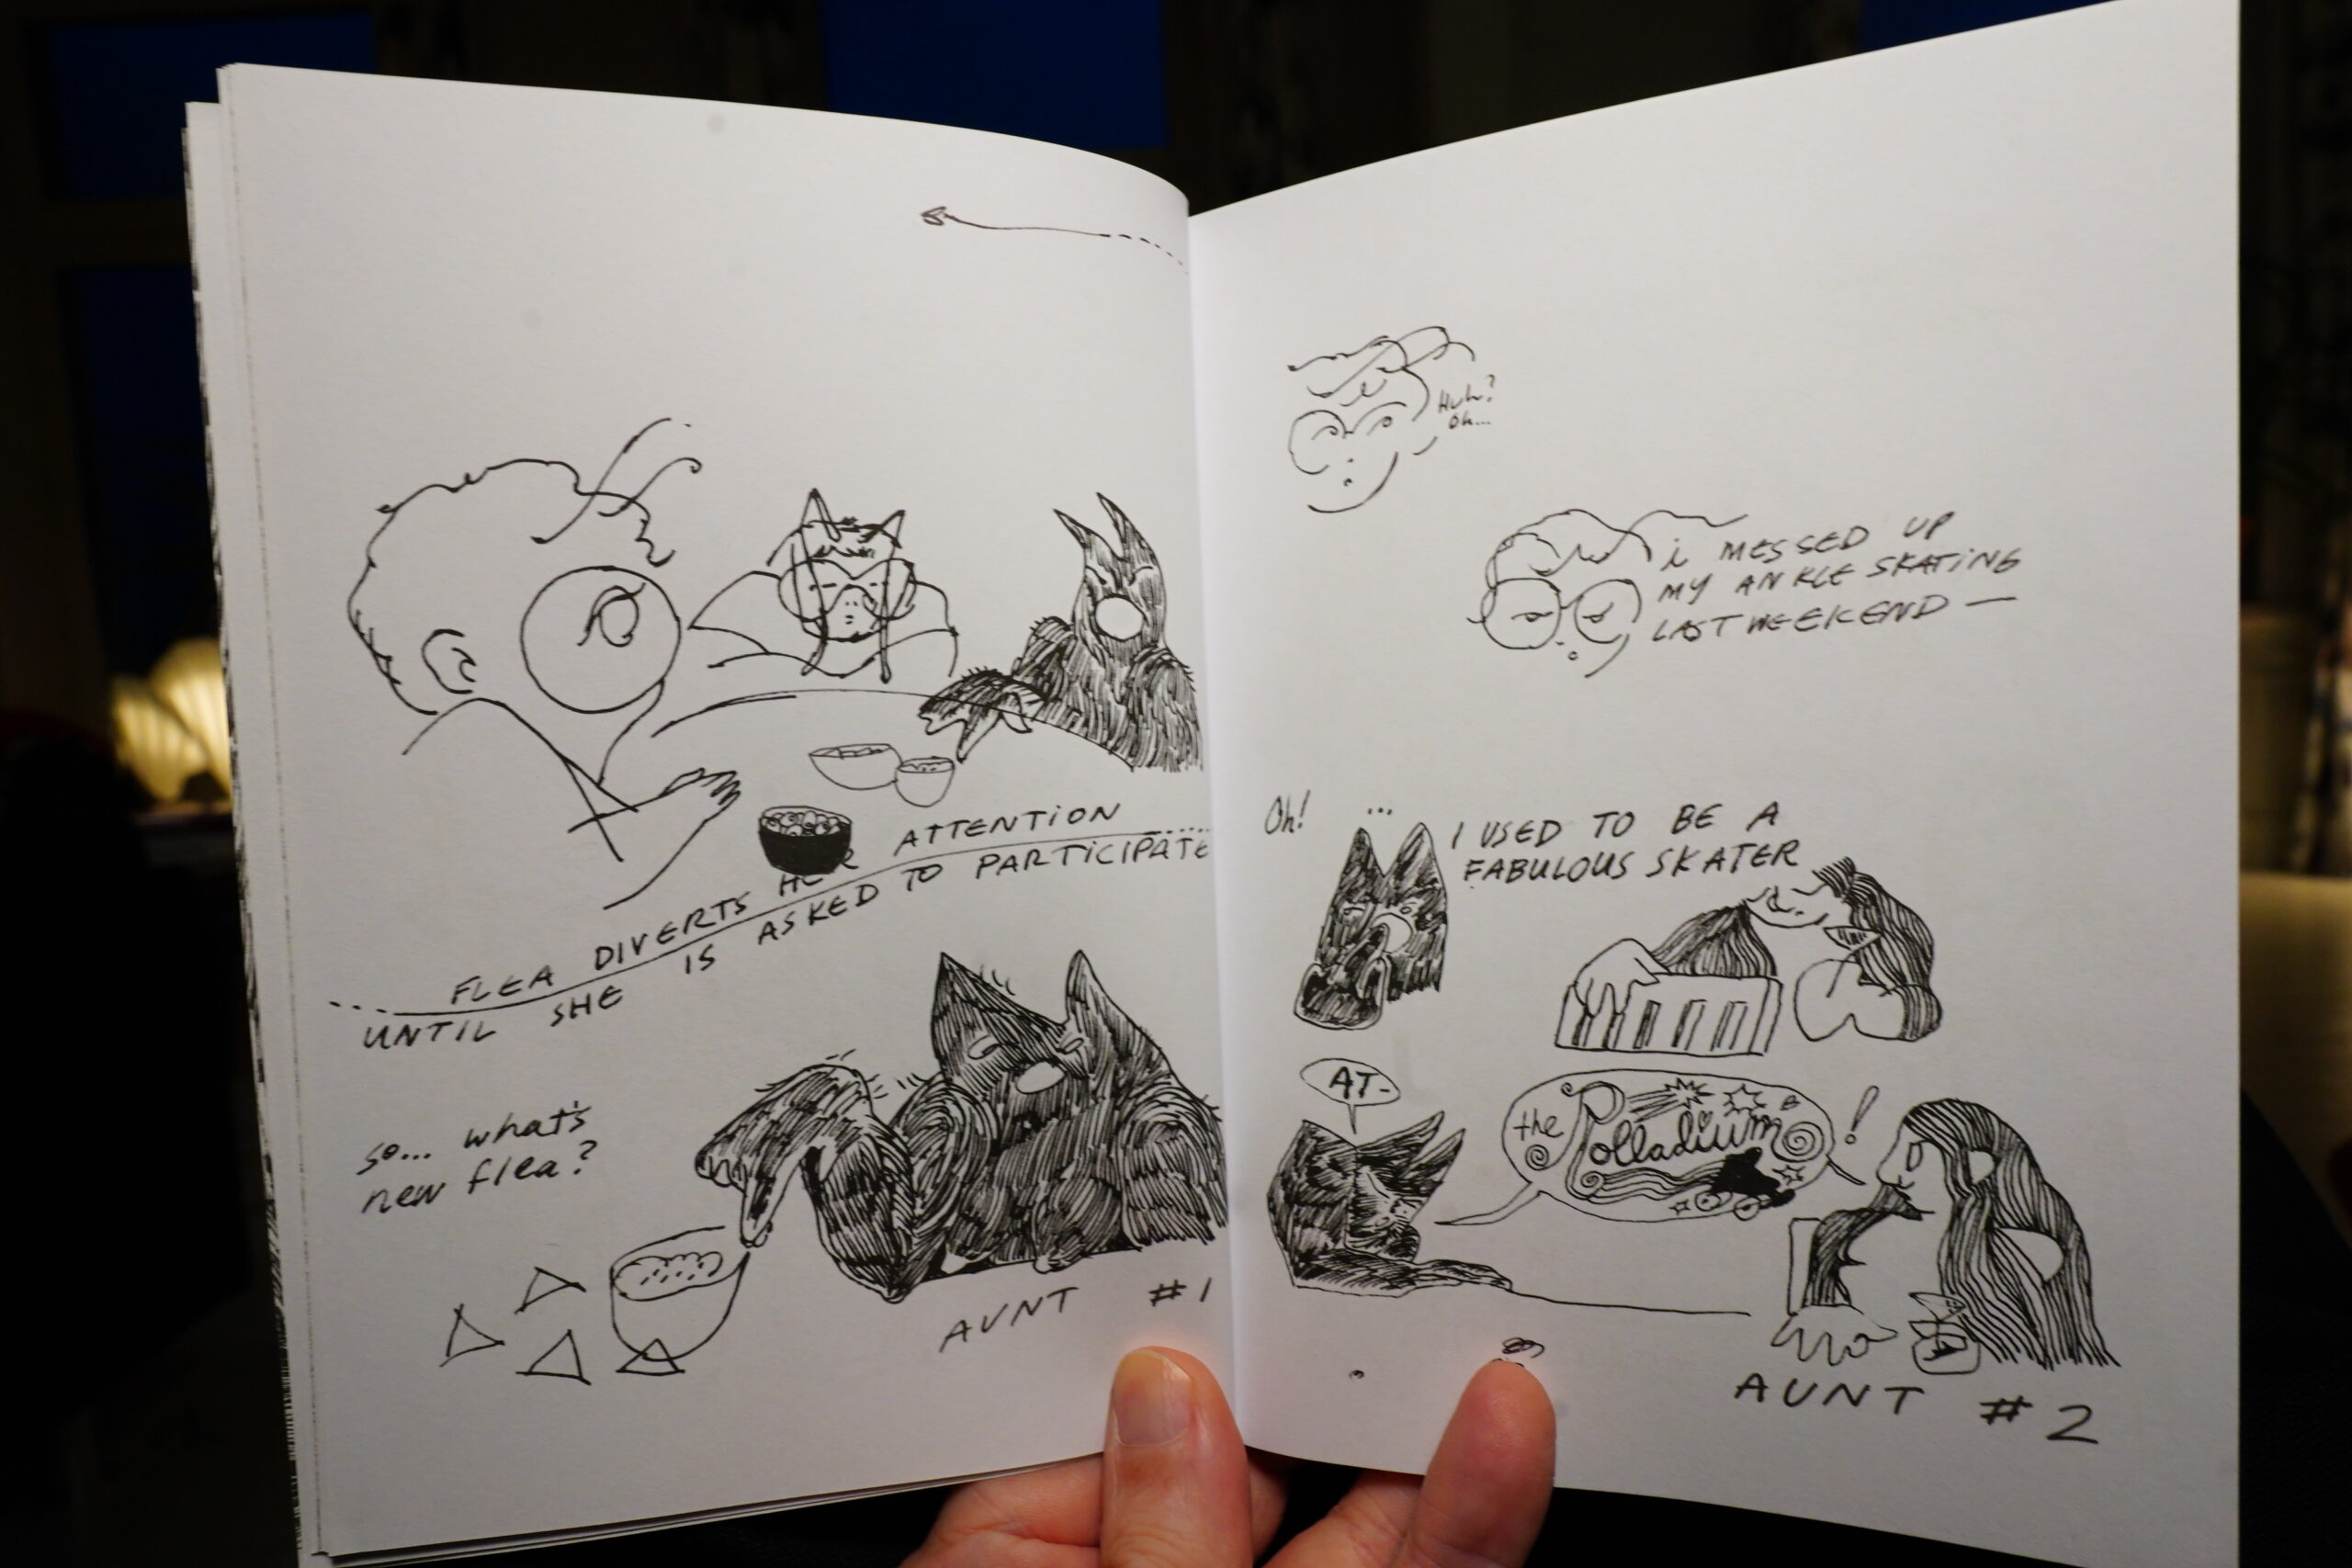 FLEA DIVERTS HER ATTENTION
UNTIL SHE IS ASKED TO PARTICIPATE
so... what's
new flea?
AUNT #1
Huh?
Oh...
i MESSED UP
MY ANKLE SKATING
LAST WEEKEND —
Oh!
...
I USED TO BE A
FABULOUS SKATER
AT-
the Polladium
!
AUNT #2